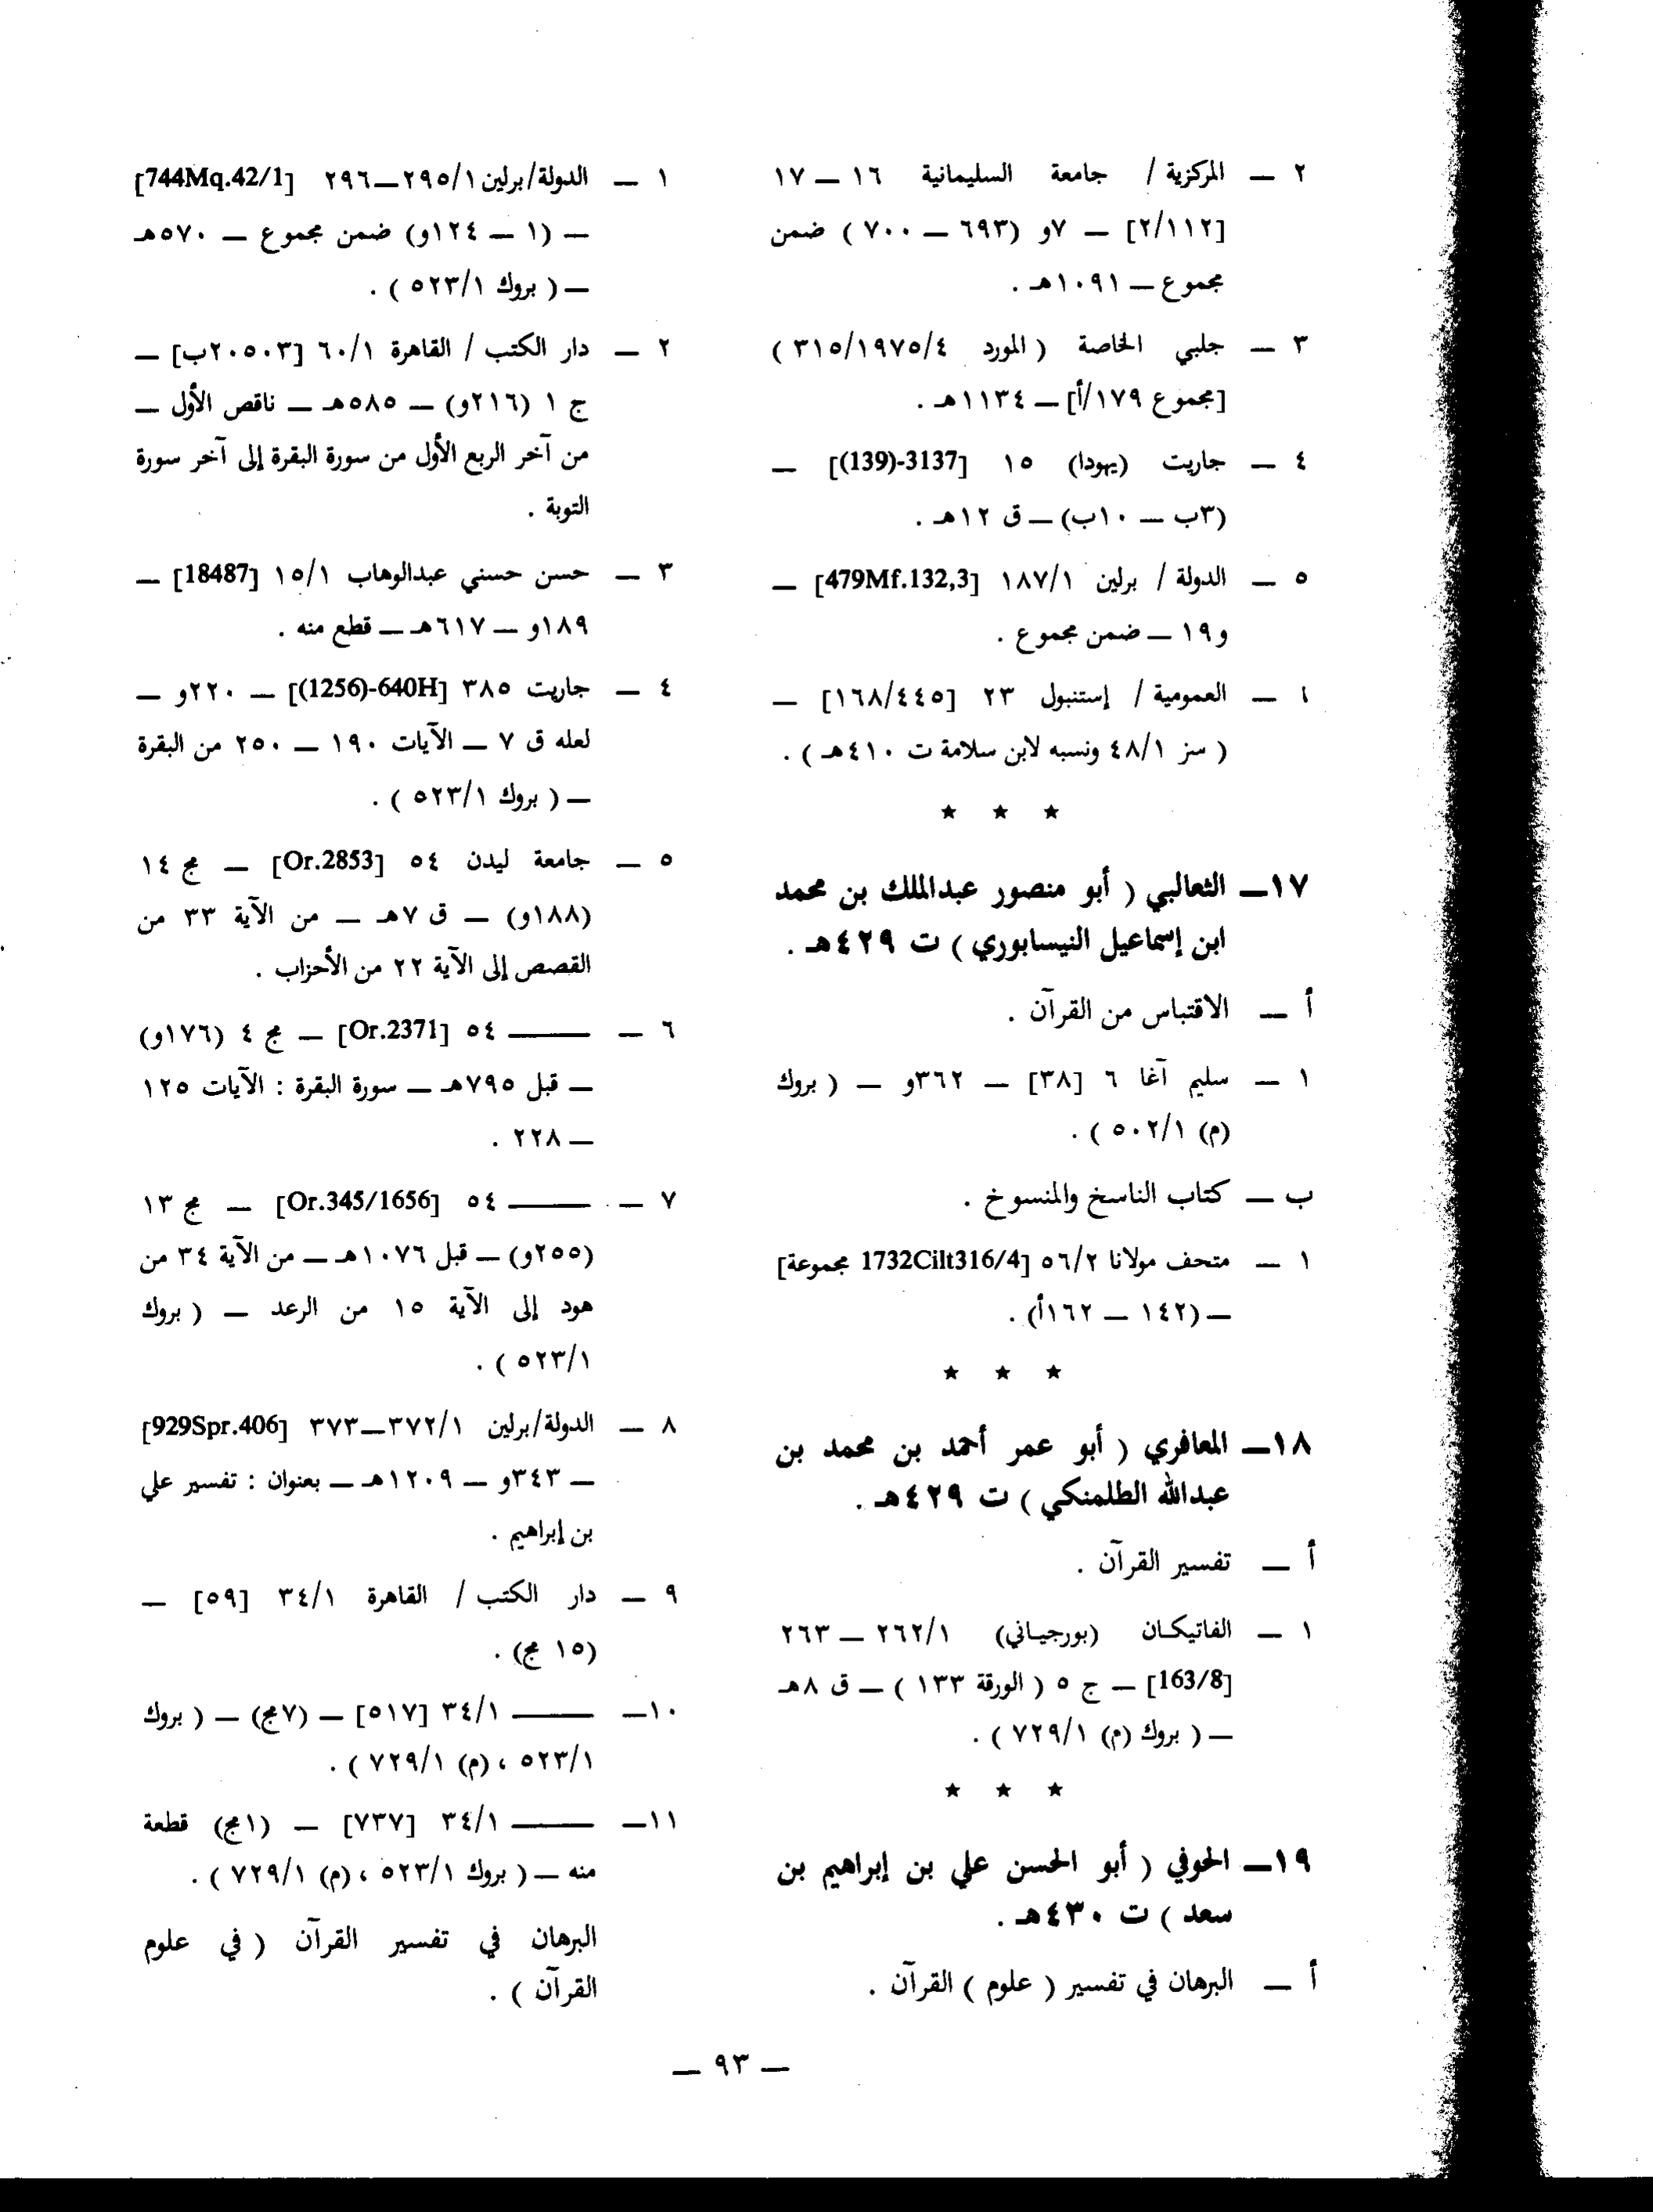 ٢ — المركزية / جامعة السليمانية ١٦ — ١٧
[٢/١١٢] — ٧و (٦٩٣ — ٧٠٠ ) ضمن
مجموع — ١٠٩١هـ .
٣ — جلبي الخاصة ( المورد ٣١٥/١٩٧٥/٤ )
[مجموع ١٧٩/أ] — ١١٣٤هـ .
٤ — جاريت (يهودا) ١٥ [3137-(139)] —
(٣ب — ١٠ب) — ق ١٢هـ .
٥ — الدولة / برلين ١٨٧/١ [479Mf.132,3] —
و١٩ — ضمن مجموع .
— العمومية / إستنبول ٢٣ [١٦٨/٤٤٥] —
( سز ٤٨/١ ونسبه لابن سلامة ت ٤١٠هـ ) .
★ ★ ★
١٧— الثعالبي ( أبو منصور عبدالملك بن محمد
ابن إسماعيل النيسابوري ) ت ٤٢٩هـ .
أ — الاقتباس من القرآن .
١ — سليم آغا ٦ [٣٨] — ٣٦٢و — ( بروك
(م) ٥٠٢/١ ) .
ب — كتاب الناسخ والمنسوخ .
١ — متحف مولانا ٥٦/٢ [1732Cilt316/4 مجموعة]
— (١٤٢ — ١٦٢أ) .
★ ★ ★
١٨— المعافري ( أبو عمر أحمد بن محمد بن
عبدالله الطلمنكي ) ت ٤٢٩هـ .
أ — تفسير القرآن .
١ — الفاتيكـان (بورجيـاني) ٢٦٢/١ — ٢٦٣
[163/8] — ج ٥ ( الورقة ١٣٣ ) — ق ٨هـ
— ( بروك (م) ٧٢٩/١ ) .
★ ★ ★
١٩— الحوفي ( أبو الحسن علي بن إبراهيم بن
سعد ) ت ٤٣٠هـ .
أ — البرهان في تفسير ( علوم ) القرآن .
١ — الدولة/برلين ٢٩٥/١—٢٩٦ [744Mq.42/1]
— (١ — ١٢٤و) ضمن مجموع — ٥٧٠هـ
— ( بروك ٥٢٣/١ ) .
٢ — دار الكتب / القاهرة ٦٠/١ [٢٠٥٠٣ب] —
ج ١ (٢١٦و) — ٥٨٥هـ — ناقص الأول —
من آخر الربع الأول من سورة البقرة إلى آخر سورة
التوبة .
٣ — حسن حسني عبدالوهاب ١٥/١ [18487] —
١٨٩و — ٦١٧هـ — قطع منه .
٤ — جاريت ٣٨٥ [640H-(1256)] — ٢٢٠و —
لعله ق ٧ — الآيات ١٩٠ — ٢٥٠ من البقرة
— ( بروك ٥٢٣/١ ) .
٥ — جامعة ليدن ٥٤ [Or.2853] — مج ١٤
(١٨٨و) — ق ٧هـ — من الآية ٣٣ من
القصص إلى الآية ٢٢ من الأحزاب .
٦ — ——— ٥٤ [Or.2371] — مج ٤ (١٧٦و)
— قبل ٧٩٥هـ — سورة البقرة : الآيات ١٢٥
— ٢٢٨ .
٧ — ——— ٥٤ [Or.345/1656] — مج ١٣
(٢٥٥و) — قبل ١٠٧٦هـ — من الآية ٣٤ من
هود إلى الآية ١٥ من الرعد — ( بروك
٥٢٣/١ ) .
٨ — الدولة/برلين ٣٧٢/١—٣٧٣ [929Spr.406]
— ٣٤٣و — ١٢٠٩هـ — بعنوان : تفسير علي
بن إبراهيم .
٩ — دار الكتب / القاهرة ٣٤/١ [٥٩] —
(١٥ مج) .
١٠— ——— ٣٤/١ [٥١٧] — (٧مج) — ( بروك
٥٢٣/١ ، (م) ٧٢٩/١ ) .
١١— ——— ٣٤/١ [٧٣٧] — (١مج) قطعة
منه — ( بروك ٥٢٣/١ ، (م) ٧٢٩/١ ) .
البرهان في تفسير القرآن ( في علوم
القرآن ) .
— ٩٣ —